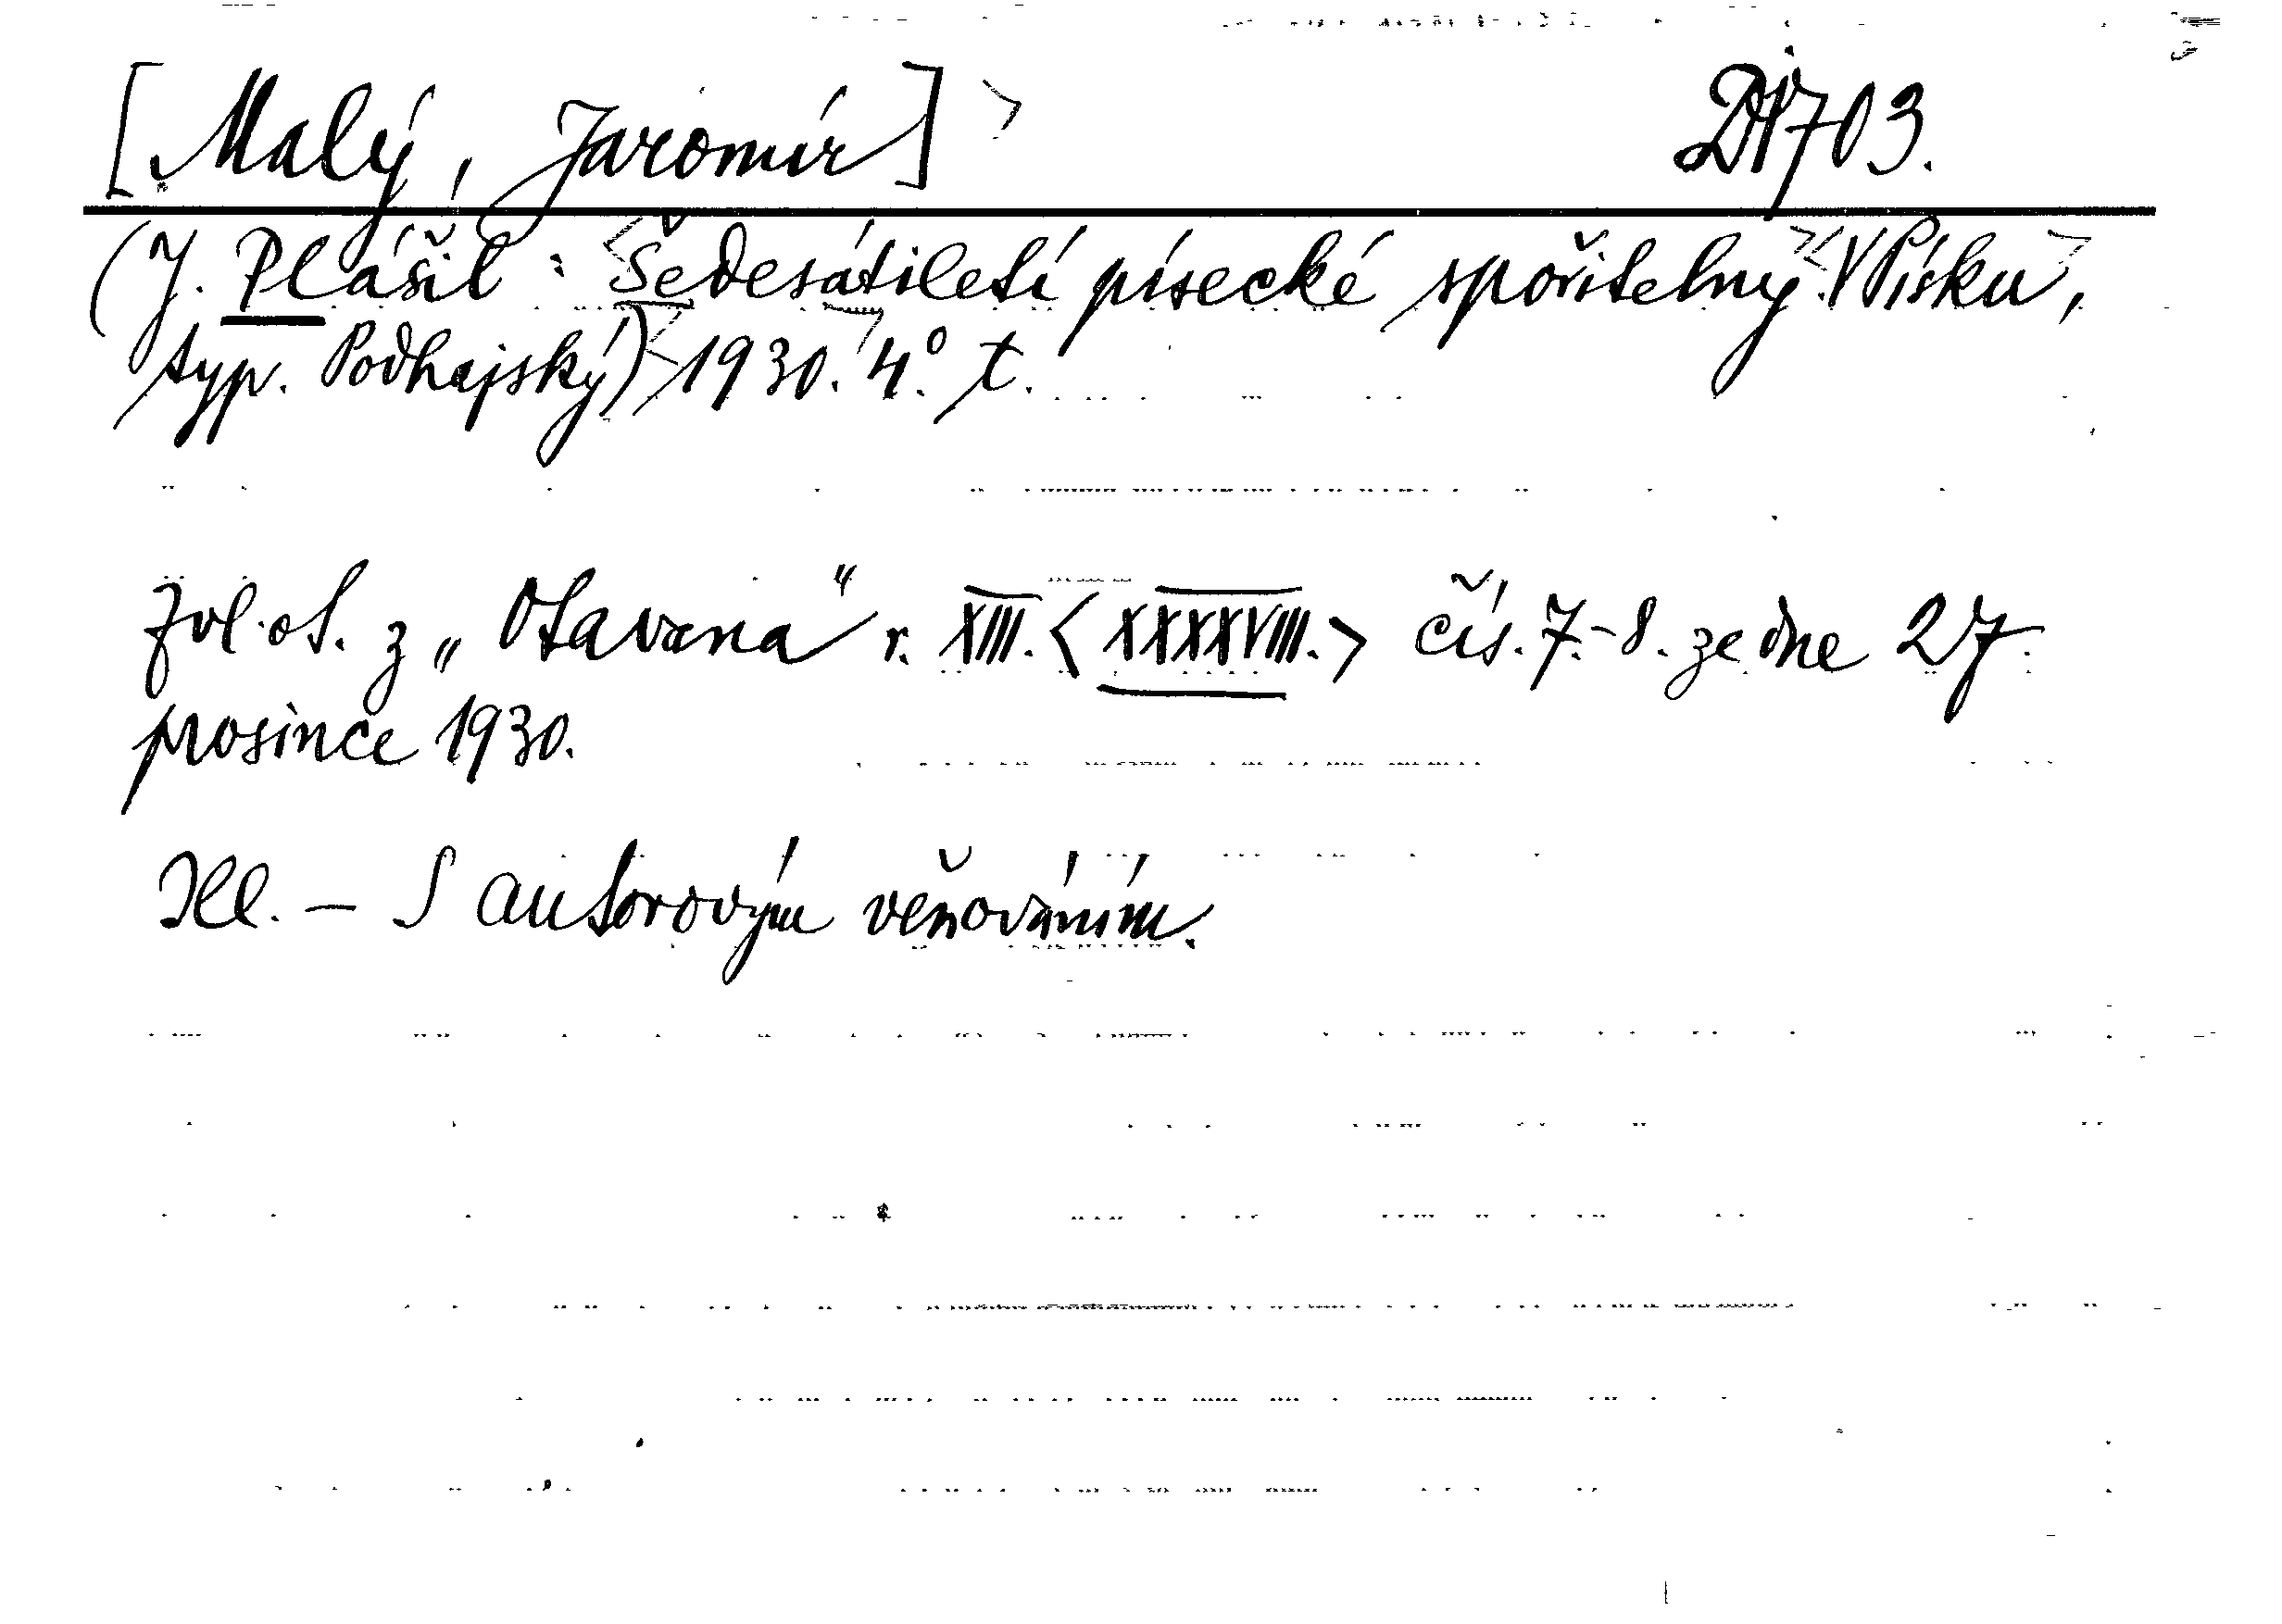 [Malý, Jaromír] D1703.
(J. Plášil: Šedesátiletí písecké spořitelny. V Písku,
typ. Podhajský) 1930. 4° t.
Zvl. ot. z „Otavana" r. XIII. <XXXXVIII.> čís. 7.-8. ze dne 27.
prosince 1930.
Ill. – S autorovým věnováním.